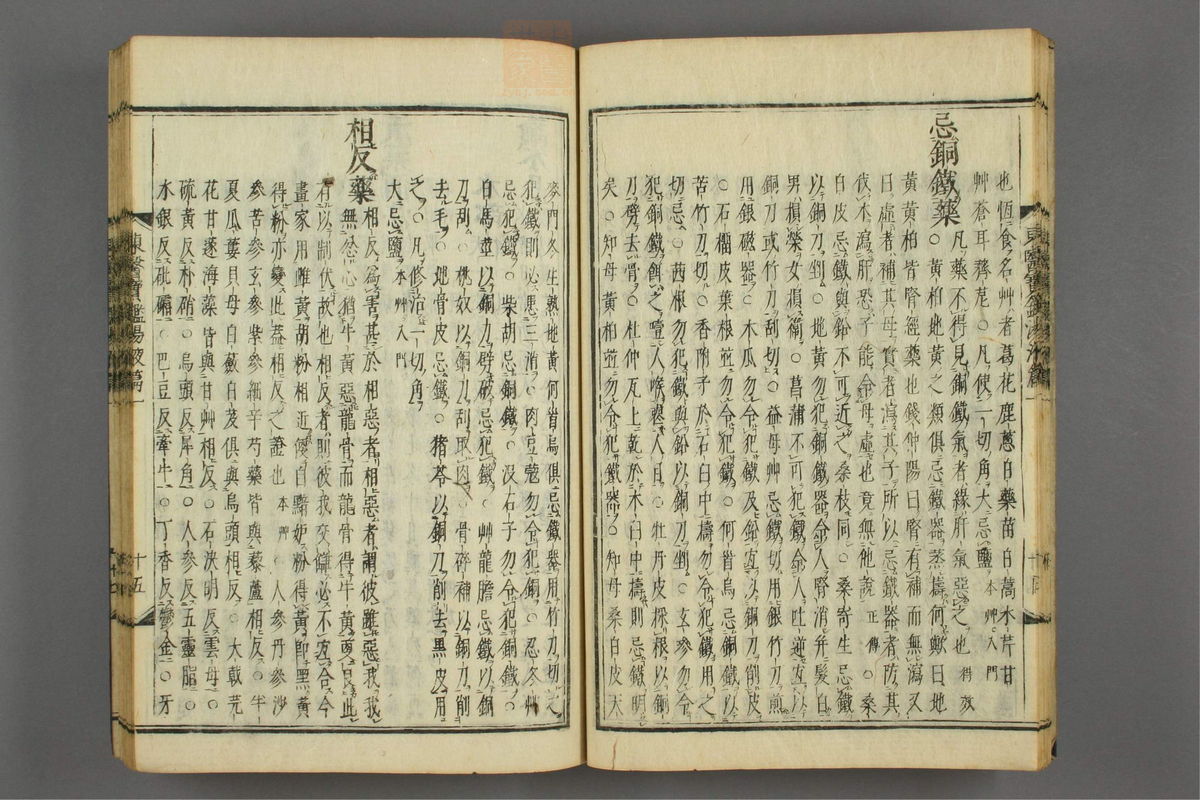 也恆食名艸者葛花鹿蔥白藥苗白蒿水芹甘
艸蒼耳薺苨○凡使一切角大忌鹽本艸入門
忌銅鐵藥
凡藥不得見銅鐵氣者緣肝氣惡之也得效
○黃柏地黃之類俱忌鐵器蒸擣何歟曰地
黃黃柏皆腎經藥也錢仲陽曰腎有補而無瀉又
曰虛者補其母實者瀉其子所以忌鐵器者防其
伐木瀉肝恐子能令母虛也竟無他說正傳○桑
白皮忌鐵與鉛不可近之桑枝同○桑寄生忌鐵
以銅刀剉○地黃勿犯銅鐵器令人腎消幷髮白
男損榮女損衛○菖蒲不可犯鐵令人吐逆宜以
銅刀或竹刀刮切○益母艸忌鐵切用銀竹刀煎
用銀磁器○木瓜勿犯鐵及鉛宜以銅刀削皮
○石榴皮葉根並勿令犯鐵○何首烏忌銅鐵以
苦竹刀切○香附子於石臼中擣勿令犯鐵用之
切忌○茜根勿犯鐵與鉛以銅刀剉○玄參勿令
犯銅鐵餌之噎人喉喪人目○牡丹皮採根以銅
刀劈去骨○杜仲瓦上乾於木臼中擣則忌鐵明
矣○知母黃柏並勿令犯鐵器○知母桑白皮天
麥門冬生熟地黃何首烏俱忌鐵器用竹刀切之
犯鐵則必患三消○肉豆蔻勿令犯銅○忍冬艸
忌犯鐵○柴胡忌銅鐵○沒石子勿令犯銅鐵○
白馬莖以銅刀劈破忌犯鐵○艸龍膽忌鐵以銅
刀刮○桃奴以銅刀刮取肉○骨碎補以銅刀削
去毛○地骨皮忌鐵○猪苓以銅刀削去黑皮用
之○凡修治一切角
大忌鹽本艸入門
相反藥
相反爲害甚於相惡者相惡者謂彼雖惡我我
無忿心猶牛黃惡龍骨而龍骨得牛黃更良此
有以制伏故也相反者則彼我交讎必不宜合今
畫家用雌黃胡粉相近便自黯妬粉得黃卽黑黃
得粉亦變此蓋相反之證也本艸○人參丹參沙
參苦參玄參紫參細辛芍藥皆與藜蘆相反○半
夏瓜蔞貝母白蘞白芨俱與烏頭相反○大戟芫
花甘遂海藻皆與甘艸相反○石決明反雲母○
硫黃反朴硝○烏頭反犀角○人參反五靈脂○
水銀反砒礵○巴豆反牽牛○丁香反鬱金○牙
東醫寶鑑湯液篇一
十五